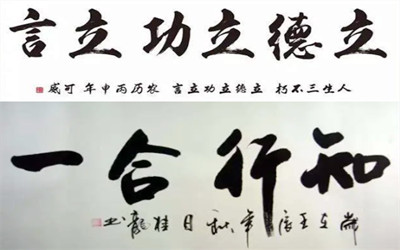 立德立功立言
人生三不朽 立德立功立言 农历丙申年 可威
知行合一
歲在壬辰年秋日桂龍书